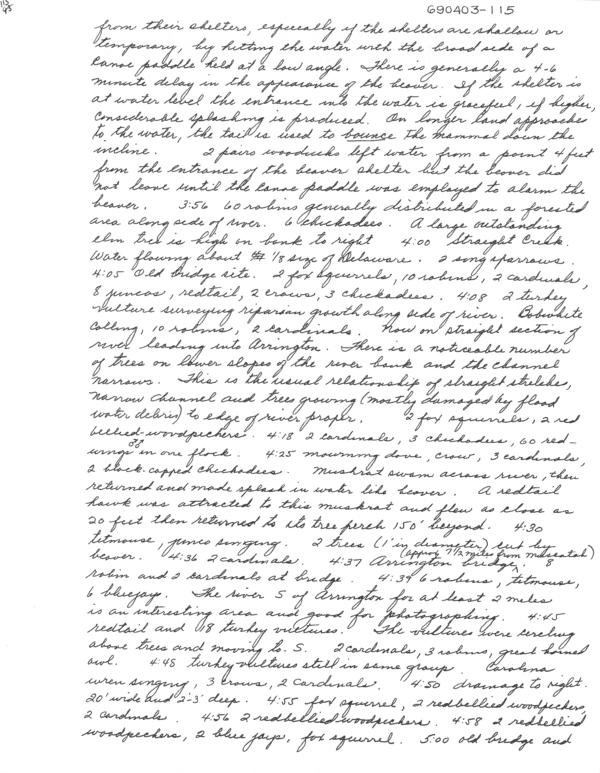 110
45
690403-115
from their shelters, especially if the shelters are shallow or
temporary, by hitting the water with the broad side of a
Canoe paddle held at a low angle. There is generally a 4-6
minute delay in the appearance of the beaver. If the shelter is
at water level the entrance into the water is graceful, if higher,
considerable splashing is produced. On longer land approaches
to the water, the tail is used to bounce the mammal down the
incline. 2 pairs woodducks left water from a point 4 feet
from the entrance of the beaver shelter but the beaver did
not leave until the canoe paddle was employed to alarm the
beaver. 3:56 60 robins generally distributed in a forested
area along side of river. 6 chickadees. A large outstanding
elm tree is high on bank to right 4:00 Straight Creek.
Water flowing about 1/8 size of Delaware. 2 song sparrows.
4:05 Old bridge site. 2 fox squirrels, 10 robins, 2 cardinals,
8 juncos, redtail, 2 crows, 3 chickadees. 4:08 2 turkey
vulture surveying riparian growth along side of river. Bobwhite
calling, 10 robins, 2 cardinals. Now on straight section of
river leading into Arrington. There is a noticeable number
of trees on lower slopes of the river bank and the channel
narrows. This is the usual relationship of straight stretches,
narrow channel and trees growing (mostly damaged by flood
water debris) to edge of river proper. 2 fox squirrels, 2 red
bellied-woodpeckers. 4:18 2 cardinals, 3 chickadees, 60 red-
wings ♂♂ in one flock. 4:25 mourning dove, crow, 3 cardinals,
2 black-capped chickadees. Muskrat swam across river, then
returned and made splash in water like beaver. A redtail
hawk was attracted to this muskrat and flew as close as
20 feet then returned to its tree perch 150' beyond. 4:30
titmouse, junco singing. 2 trees (1' in diameter) cut by
beaver. 4:36 2 cardinals. 4:37 Arrington bridge. (approx 7 1/2 miles from Muscotah) 8
robin and 2 cardinals at bridge. 4:39 6 robins, titmouse,
6 bluejays. The river S of Arrington for at least 2 miles
is an interesting area and good for photographing. 4:45
redtail and 18 turkey vultures. The vultures were circling
above trees and moving to S. 2 cardinals, 3 robins, great horned
owl. 4:48 turkey vultures still in same group. Carolina
wren singing, 3 crows, 2 cardinals. 4:50 drainage to right.
20' wide and 2-3' deep. 4:55 fox squirrel, 2 redbellied woodpeckers,
2 cardinals. 4:56 2 redbellied woodpeckers. 4:58 2 redbellied
woodpeckers, 2 blue jays, fox squirrel. 5:00 old bridge and